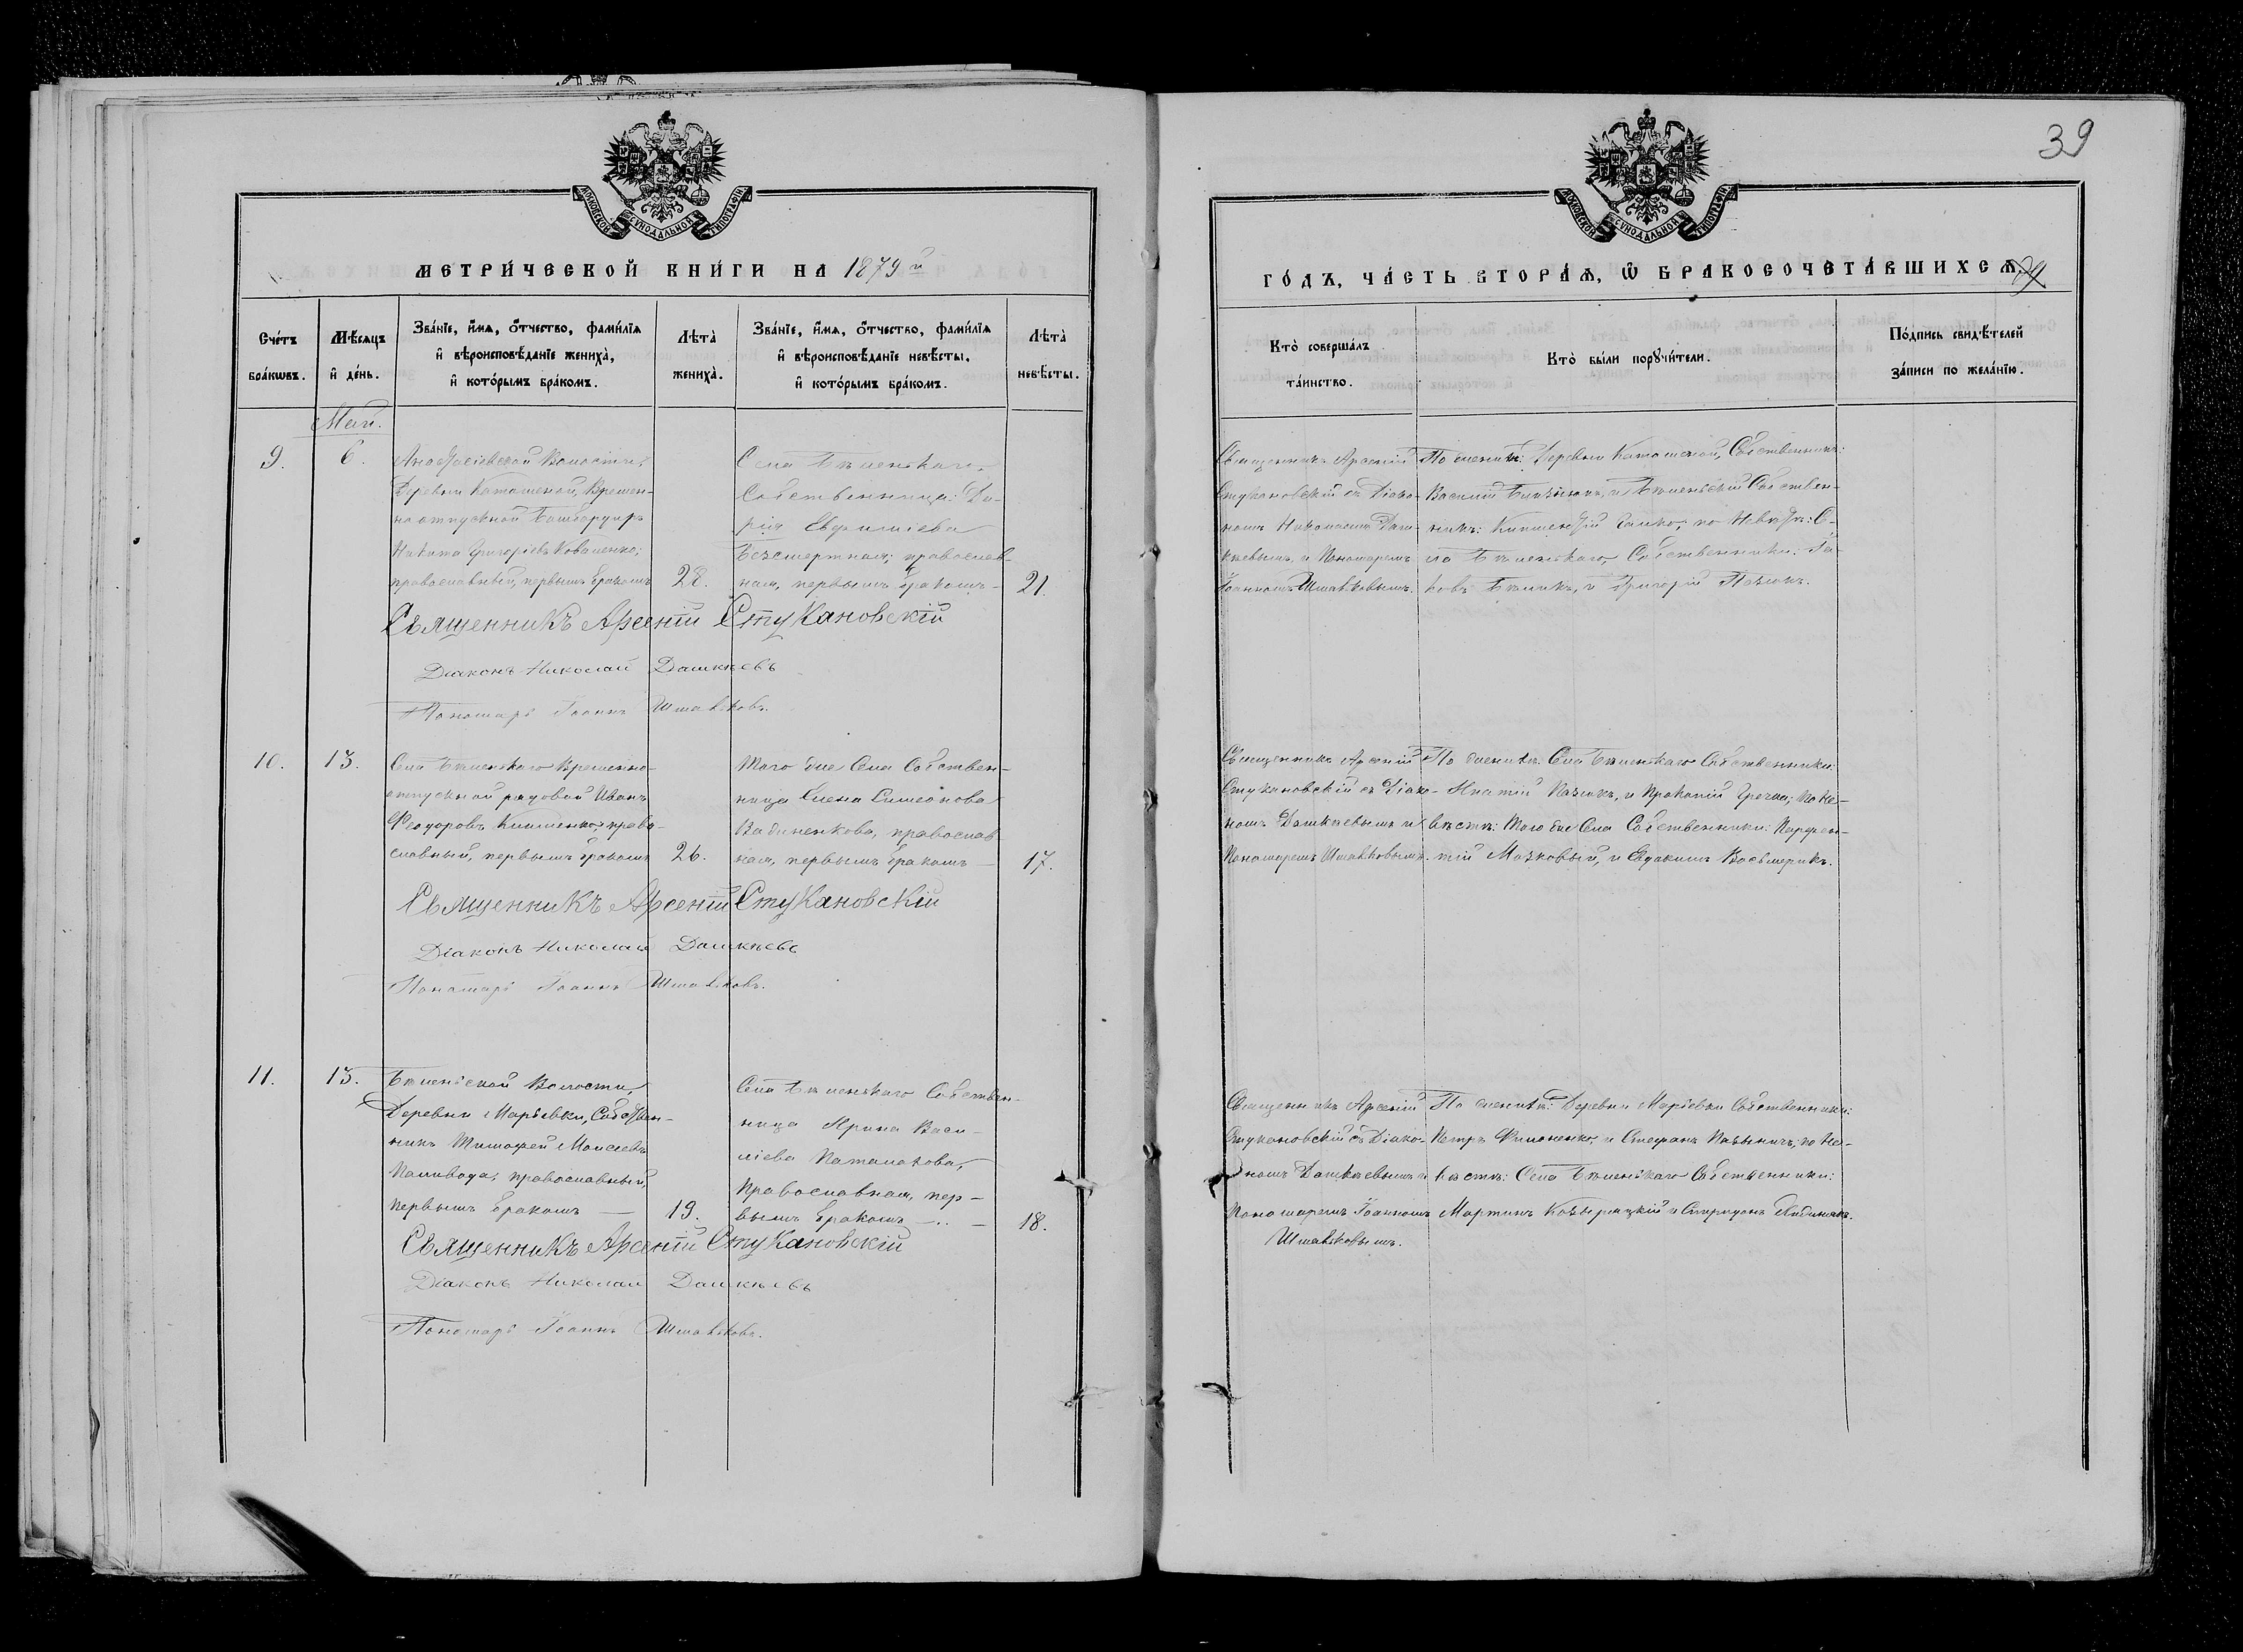 39
МОСКОВСКОЙ СѴНОДАЛЬНОЙ ТИПОГРАФІИ
МОСКОВСКОЙ СѴНОДАЛЬНОЙ ТИПОГРАФІИ
МЕТРИ́ЧЕСКОЙ КНИ́ГИ НА 1879й
ГО́ДЪ, ЧА́СТЬ ВТОРА́Ѧ, Ѽ БРАКОСОЧЕТА́ВШИХСѦ.
Сче́тъ бра́кѡвъ.
Мѣ́сяцъ и҆ де́нь.
Зва́нїе, и҆́мѧ, ѻ҆́тчество, фами́лїѧ
и҆ вѣроисповѣ́данїе жениха̀,
и҆ кото́рымъ бра́комъ.
Лѣ́та̀ жениха̀.
Зва́нїе, и҆́мѧ, ѻ҆́тчество, фами́лїѧ
и҆ вѣроисповѣ́данїе невѣ́сты,
и҆ кото́рымъ бра́комъ.
Лѣ́та̀ невѣ́сты.
Кто̀ соверша́лъ
та́инство.
Кто̀ бы́ли порꙋчи́тели.
По́дпись свидѣ́телей
за́писи по жела́нїю.
Май.
9.
6.
Волости,
Деревни Катошеной, Времен-
но отпускной
Никита Григорьевъ Коваленко;
православный, первымъ бракомъ
28.
Села Бѣленькаго,
Собственница: Да-
рія Евфиміева
Безсмертная; православ-
ная, первымъ бракомъ —
21.
Священникъ Арсеній
Стукановскій съ Діако-
номъ Николаемъ Даш-
кѣевымъ и Пономаремъ
Іоанномъ Шмавковымъ.
По женихѣ: Деревни Катошеной, Собственникъ:
Василій и Бѣленьскій Собствен-
никъ: по Невѣстѣ: Се-
ла Бѣленькаго, Собственники: Іа-
ковъ Бѣликъ, и Григорій Позюкъ.
Священникъ Арсеній Стукановскій
Діаконъ Николай Дашкѣевъ
Пономарь Іоаннъ Шмавковъ.
10.
13.
Села Бѣленькаго Временно-
отпускной рядовой Иванъ
Феодоровъ Клименко, право-
славный, первымъ бракомъ
26.
Того же Села Собствен-
ница Елена Симеонова
Бабиненкова, православ-
ная, первымъ бракомъ —
17.
Священникъ Арсеній
Стукановскій съ Діако-
номъ Дашкѣевымъ и
Пономаремъ Шмавковымъ.
По женихѣ Села Бѣленькаго Собственники:
Игнатій Позюкъ, и Прокопій Гречка; по Не-
вѣстѣ: Того же Села Собственники: Парфен-
тій Мозковый, и Евдокимъ Восьмерикъ.
Священникъ Арсеній Стукановскій
Діаконъ Николай Дашкѣевъ
Пономарь Іоаннъ Шмавковъ.
11.
13.
Бѣленьской Волости,
Деревни Марьевки, Собствен-
никъ Тимофей Моисеевъ
Паливода, православный,
первымъ бракомъ —
19.
Села Бѣленькаго Собствен-
ница Ирина Васи-
ліева Паталахова,
православная, пер-
вымъ бракомъ —
18.
Священникъ Арсеній
Стукановскій съ Діако-
номъ Дашкѣевымъ и
Пономаремъ Іоанномъ
Шмавковымъ.
По женихѣ: Деревни Марьевки Собственники:
Петръ Филоненко, и Стефанъ по Не-
вѣстѣ: Села Бѣленькаго Собственники:
Мартинъ Козырацкій и Спиридонъ
Священникъ Арсеній Стукановскій
Діаконъ Николай Дашкѣевъ
Пономарь Іоаннъ Шмавковъ.